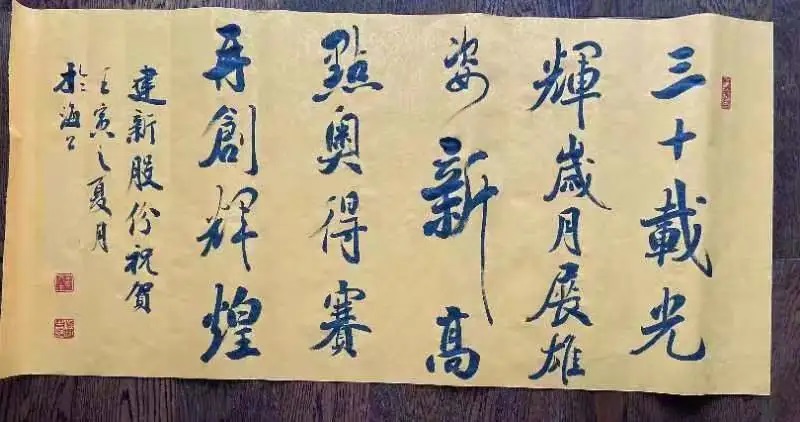 三十載光
輝歲月展雄
姿新高
點奧得賽
再創輝煌
建新股份祝賀
壬寅之夏月
於海